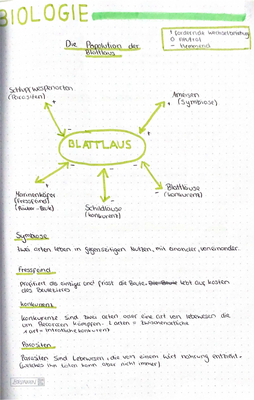 BIOLOGIE
Die Population der
Blattlaus
+ fördernde Wechselbeziehung
0 neutral
- Hemmend
Schlupfwespenarten
(Parasiten)
Ameisen
(Symbiose)
BLATTLAUS
Marienkäfer
(Fressfeind)
(Räuber-Beute)
Schildläuse
(konkurrent)
Blattläuse
(konkurrent)
Symbiose
zwei arten leben in gegenseitigen Nutzen, mit einander, voneinander.
Fressfeind
profitiert als einziges und frisst die Beute. lebt auf kosten
des Beutetieres
konkurrent
Konkurrenz sind zwei arten oder eine art von lebewesen die
um Resourcen kämpfen. 2 arten = zwischenartliche
1 art = Innerartliche konkurrent
Parasiten
Parasiten sind Lebewesen, die von einem Wirt nahrung entzieht.
(welches ihn töten kann aber nicht immer)